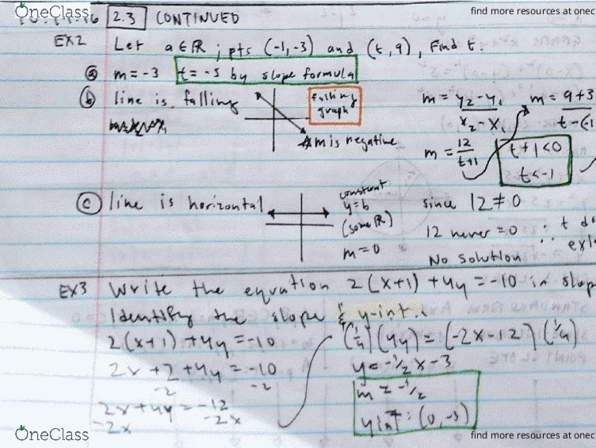 OneClass
find more resources at onec
2.3 CONTINUED
EX2 Let a ∈ ℝ ; pts (-1,-3) and (t, 9), Find t.
ⓐ m = -3 t = -5 by slope formula
ⓑ line is falling
falling graph
m is negative
m = y₂ - y₁ / x₂ - x₁
m = 9+3 / t-(-1
m = 12 / t+1
t+1<0
t<-1
ⓒ line is horizontal
constant
y = b
(some ℝ)
m = 0
since 12 ≠ 0
12 never = 0 ∴ t
No solution
EX3 Write the equation 2(x+1) + 4y = -10 in slop
Identify the slope & y-int.
2(x+1) + 4y = -10
2x + 2 + 4y = -10
-2 -2
2x + 4y = -12
-2x -2x
(1/4)(4y) = (-2x-12)(1/4)
y = -1/2 x - 3
m = -1/2
yint: (0, -3)
OneClass
find more resources at onec